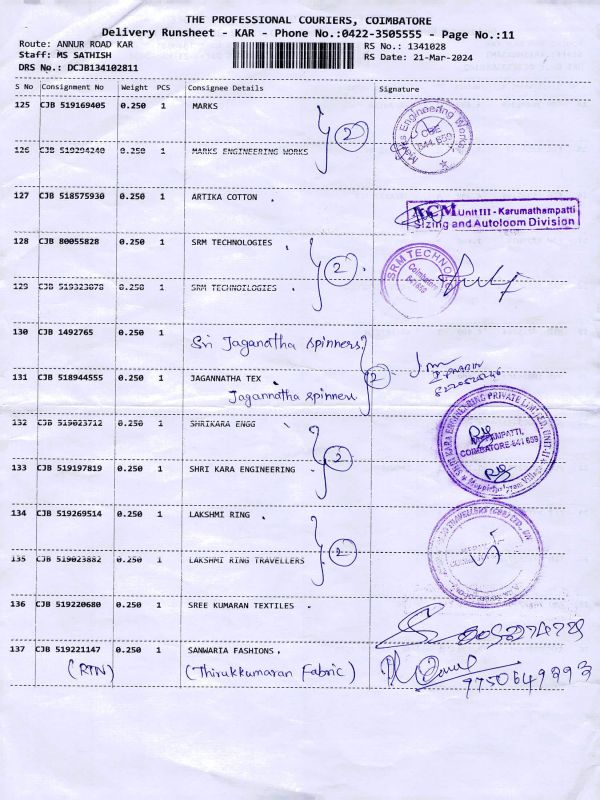 THE PROFESSIONAL COURIERS, COIMBATORE
Delivery Runsheet - KAR - Phone No.:0422-3505555 - Page No.:11
Route: ANNUR ROAD KAR
RS No.: 1341028
Staff: MS SATHISH
RS Date: 21-Mar-2024
DRS No.: DCJB134102811
S No Consignment No Weight PCS Consignee Details Signature
125 CJB 519169405 0.250 1 MARKS
2
Marks Engineering Works
CBE
641 659
126 CJB 519294240 0.250 1 MARKS ENGINEERING WORKS
127 CJB 518575930 0.250 1 ARTIKA COTTON
Unit III - Karumathampatti
Sizing and Autoloom Division
128 CJB 80055828 0.250 1 SRM TECHNOLOGIES
2
SRM TECHNO
Coimbatore
129 CJB 519323878 0.250 1 SRM TECHNOILOGIES
130 CJB 1492765 0.250 1
Sri Jagannatha spinners
2
131 CJB 518944555 0.250 1 JAGANNATHA TEX
Jagannatha spinners
132 CJB 519023712 0.250 1 SHRIKARA ENGG
2
SHRI KARA ENGINEERING PRIVATE LIMITED, UNIT-II
COIMBATORE-641 659
133 CJB 519197819 0.250 1 SHRI KARA ENGINEERING
134 CJB 519269514 0.250 1 LAKSHMI RING
2
135 CJB 519023882 0.250 1 LAKSHMI RING TRAVELLERS
136 CJB 519220680 0.250 1 SREE KUMARAN TEXTILES
137 CJB 519221147 0.250 1 SANWARIA FASHIONS
(RTN) (Thirukkumaran Fabric)
9750649393